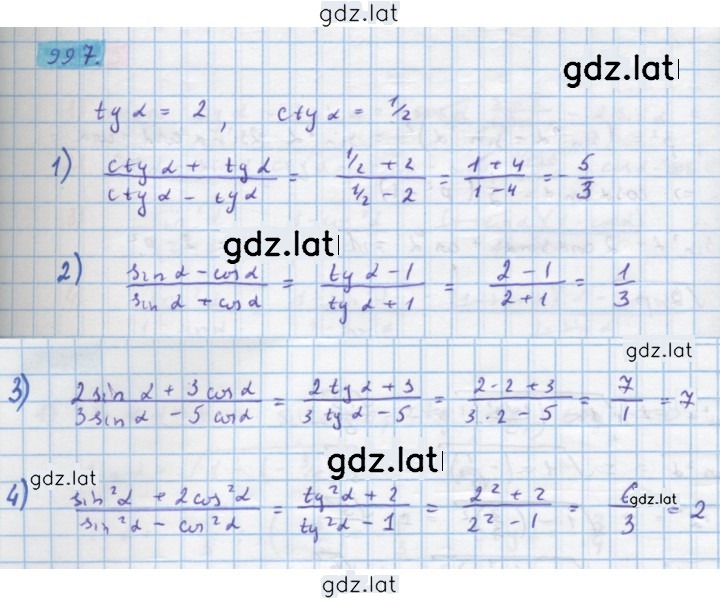 gdz.lat
997.
gdz.lat
tg α = 2, ctg α = 1/2
1) (ctg α + tg α)/(ctg α - tg α) = (1/2 + 2)/(1/2 - 2) = (1 + 4)/(1 - 4) = -5/3
gdz.lat
2) (sin α - cos α)/(sin α + cos α) = (tg α - 1)/(tg α + 1) = (2 - 1)/(2 + 1) = 1/3
gdz.lat
3) (2 sin α + 3 cos α)/(3 sin α - 5 cos α) = (2 tg α + 3)/(3 tg α - 5) = (2·2 + 3)/(3·2 - 5) = 7/1 = 7
gdz.lat
gdz.lat
4) (sin²α + 2cos²α)/(sin²α - cos²α) = (tg²α + 2)/(tg²α - 1) = (2² + 2)/(2² - 1) = 6/3 = 2
gdz.lat
gdz.lat